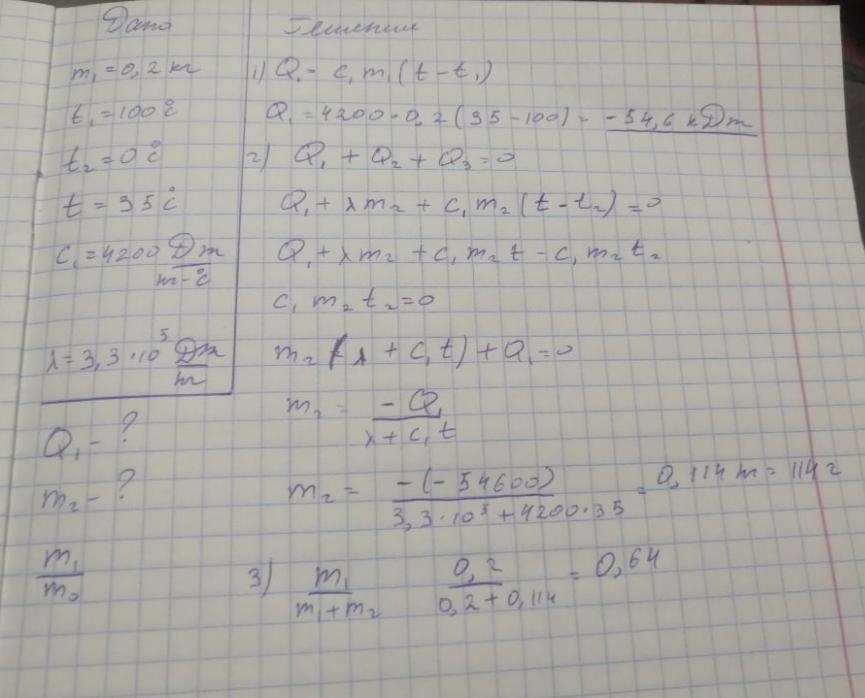 Дано
m₁ = 0,2 кг
t₁ = 100°C
t₂ = 0°C
t = 35°C
c₁ = 4200 Дж/кг·°C
λ = 3,3·10⁵ Дж/кг
Q₁ - ?
m₂ - ?
m₁/m₀
Решение
1) Q₁ = c₁m₁(t - t₁)
Q₁ = 4200·0,2(35-100) = -54,6 кДж
2) Q₁ + Q₂ + Q₃ = 0
Q₁ + λm₂ + c₁m₂(t - t₂) = 0
Q₁ + λm₂ + c₁m₂t - c₁m₂t₂
c₁m₂t₂ = 0
m₂(λ + c₁t) + Q₁ = 0
m₂ = -Q₁/λ + c₁t
m₂ = -(-54600)/3,3·10⁵ + 4200·35 = 0,114 кг = 114 г
3) m₁/m₁+m₂ 0,2/0,2+0,114 = 0,64